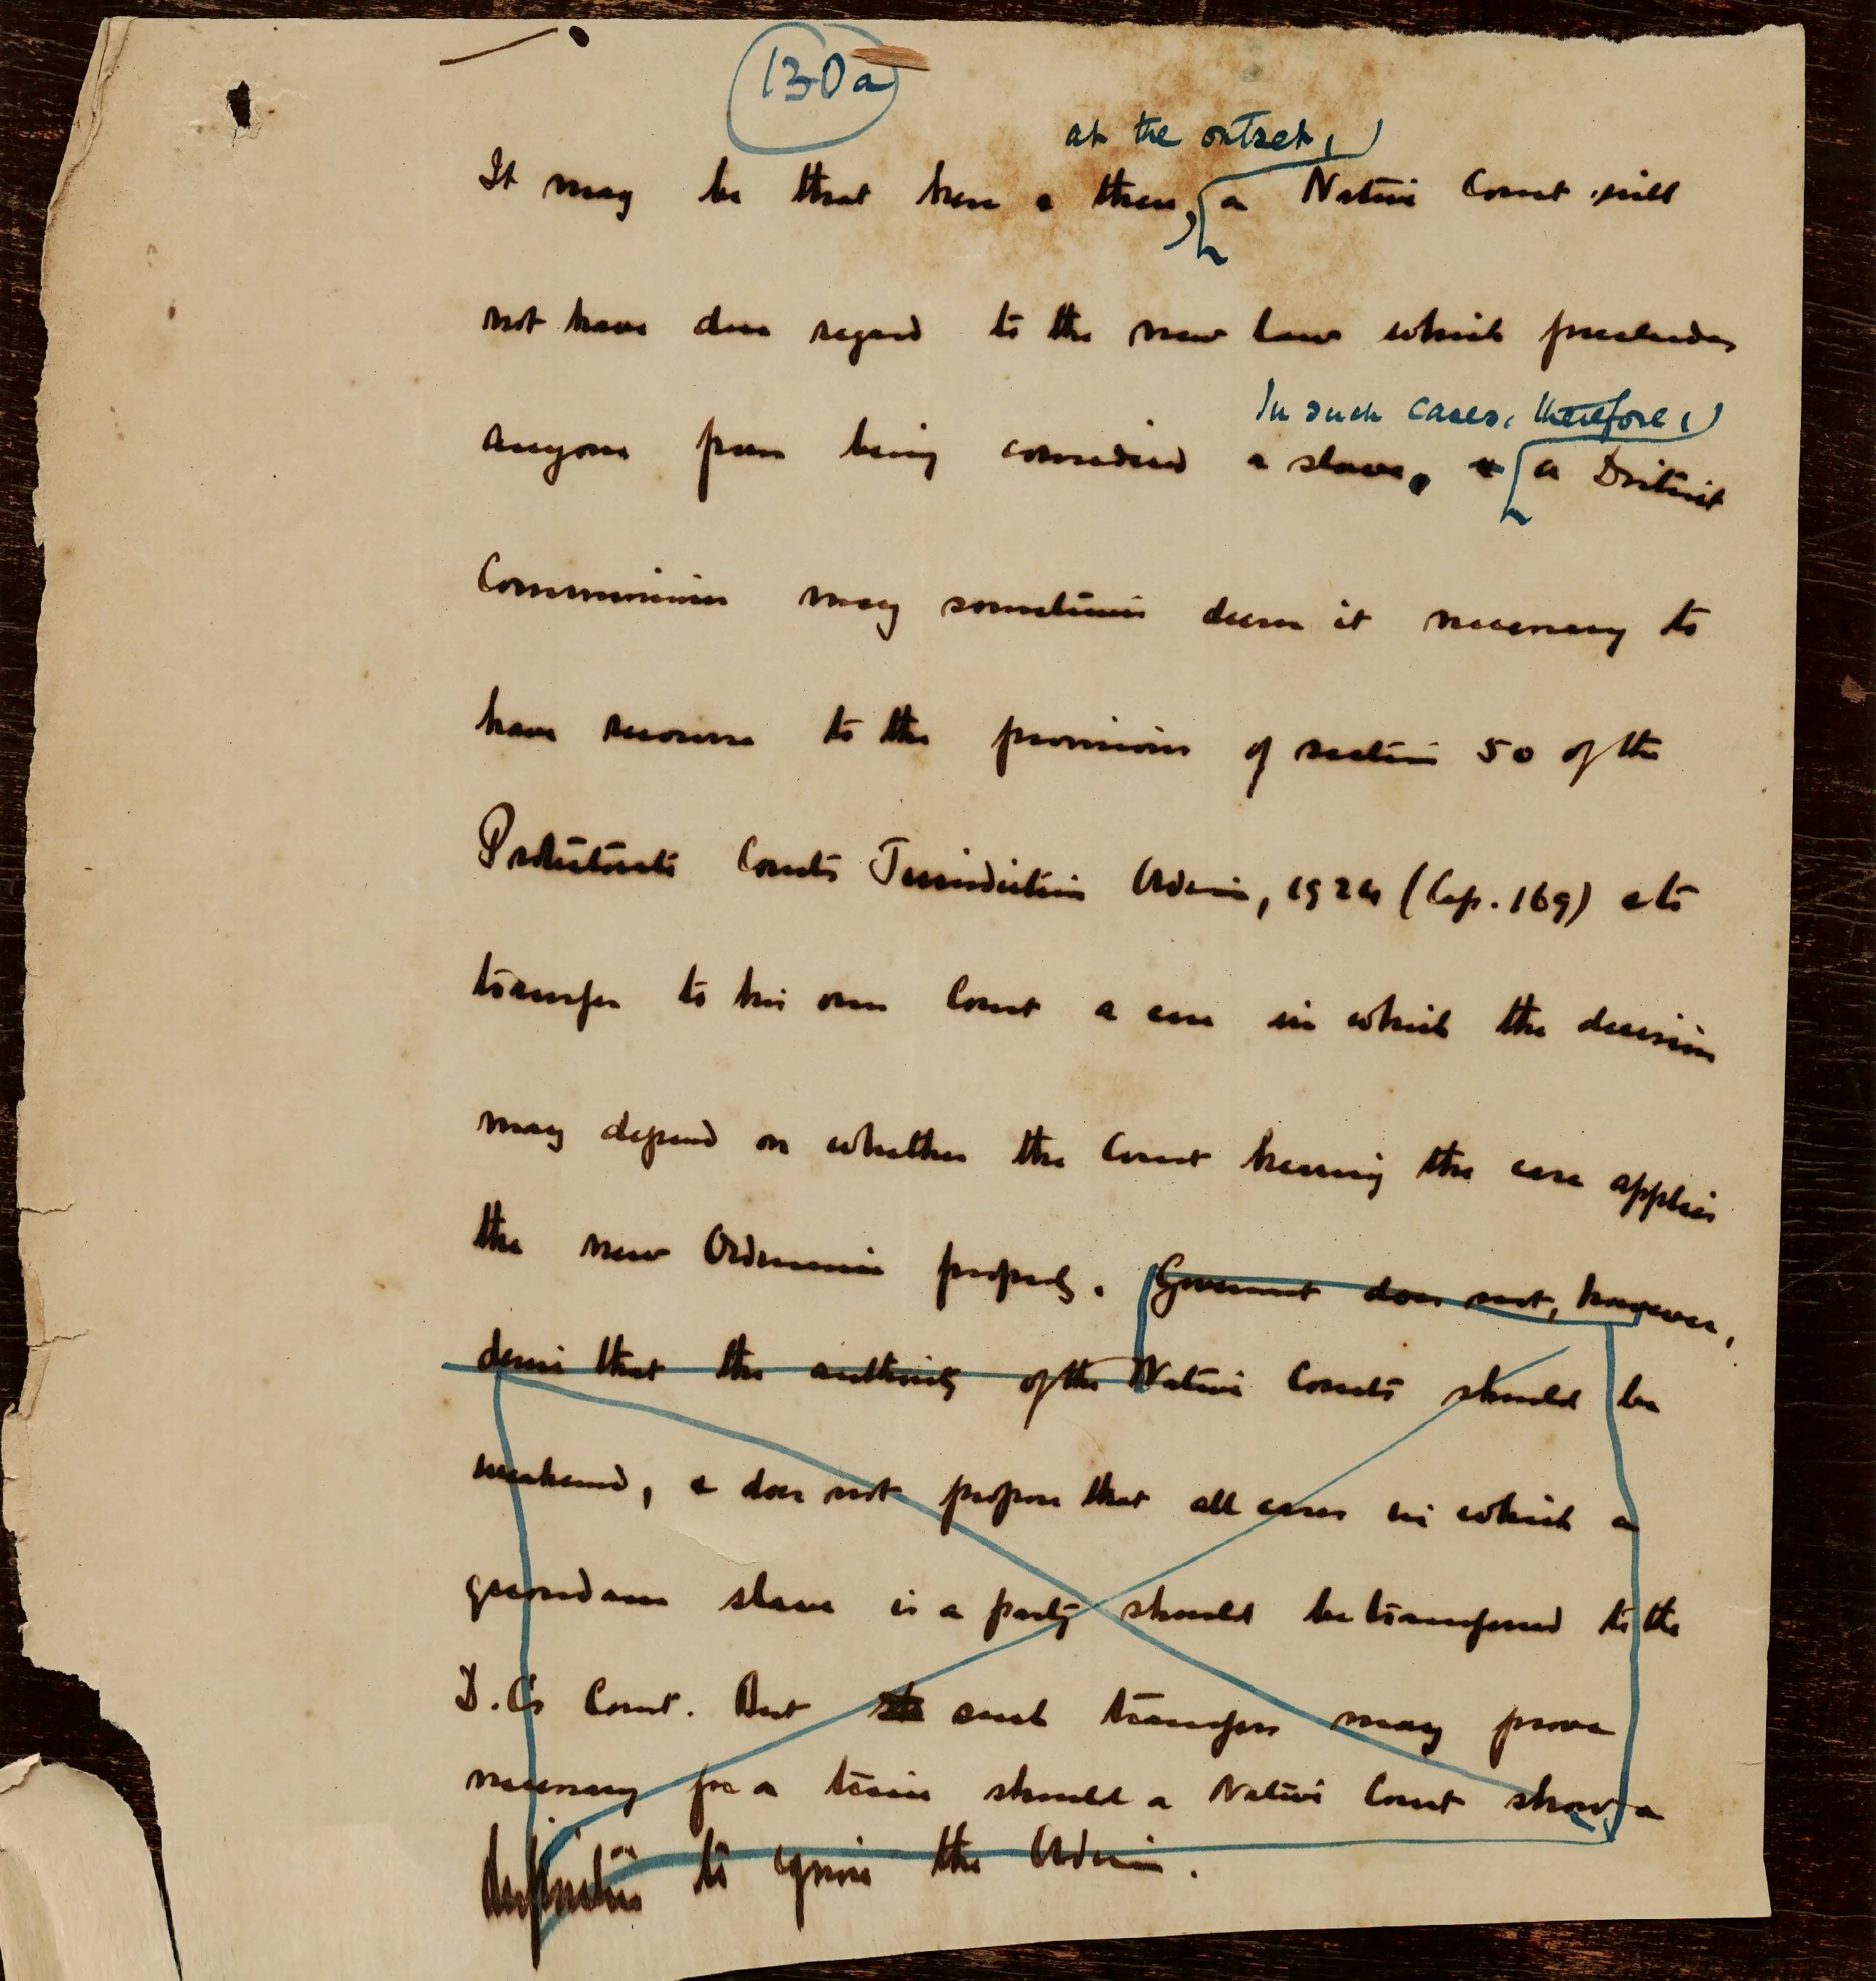 130a
at the outset,
It may be that here & there, a Native Court will
not have due regard to the new law which precludes
In such cases, therefore,
anyone from being considered a slave, & a District
Commissioner may sometimes deem it necessary to
have recourse to the provisions of section 50 of the
Protectorate Courts Jurisdiction Ordin, 1924 (Cap. 169) & to
transfer to his own Court a case in which the decision
may depend on whether the Court hearing the case applies
the new Ordinance properly. Government does not, however,
desire that the authority of the Native Courts should be
weakened, & does not propose that all cases in which a
quondam slave is a party should be transferred to the
D.C's Court. But such transfers may prove
necessary for a time should a Native Court show a
disposition to ignore the Ordin.